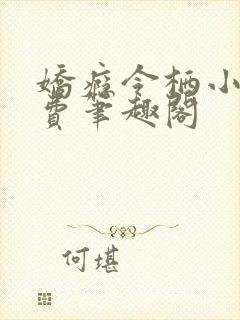 嬌癡令栖小
費筆趣閣
何堪